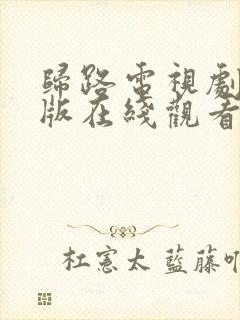 歸路電視劇
版在綫觀看
杜憲太 藍藤吖